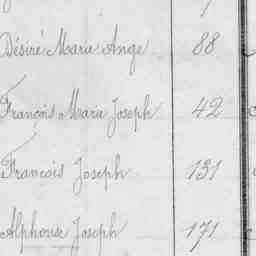 Désiré Marie Ange 88
François Marie Joseph 42
François Joseph 131
Alphonse Joseph 171